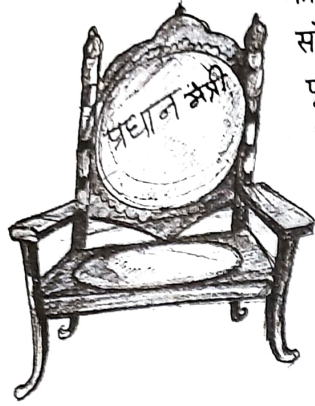 सं
पू
प्रधान मंत्री